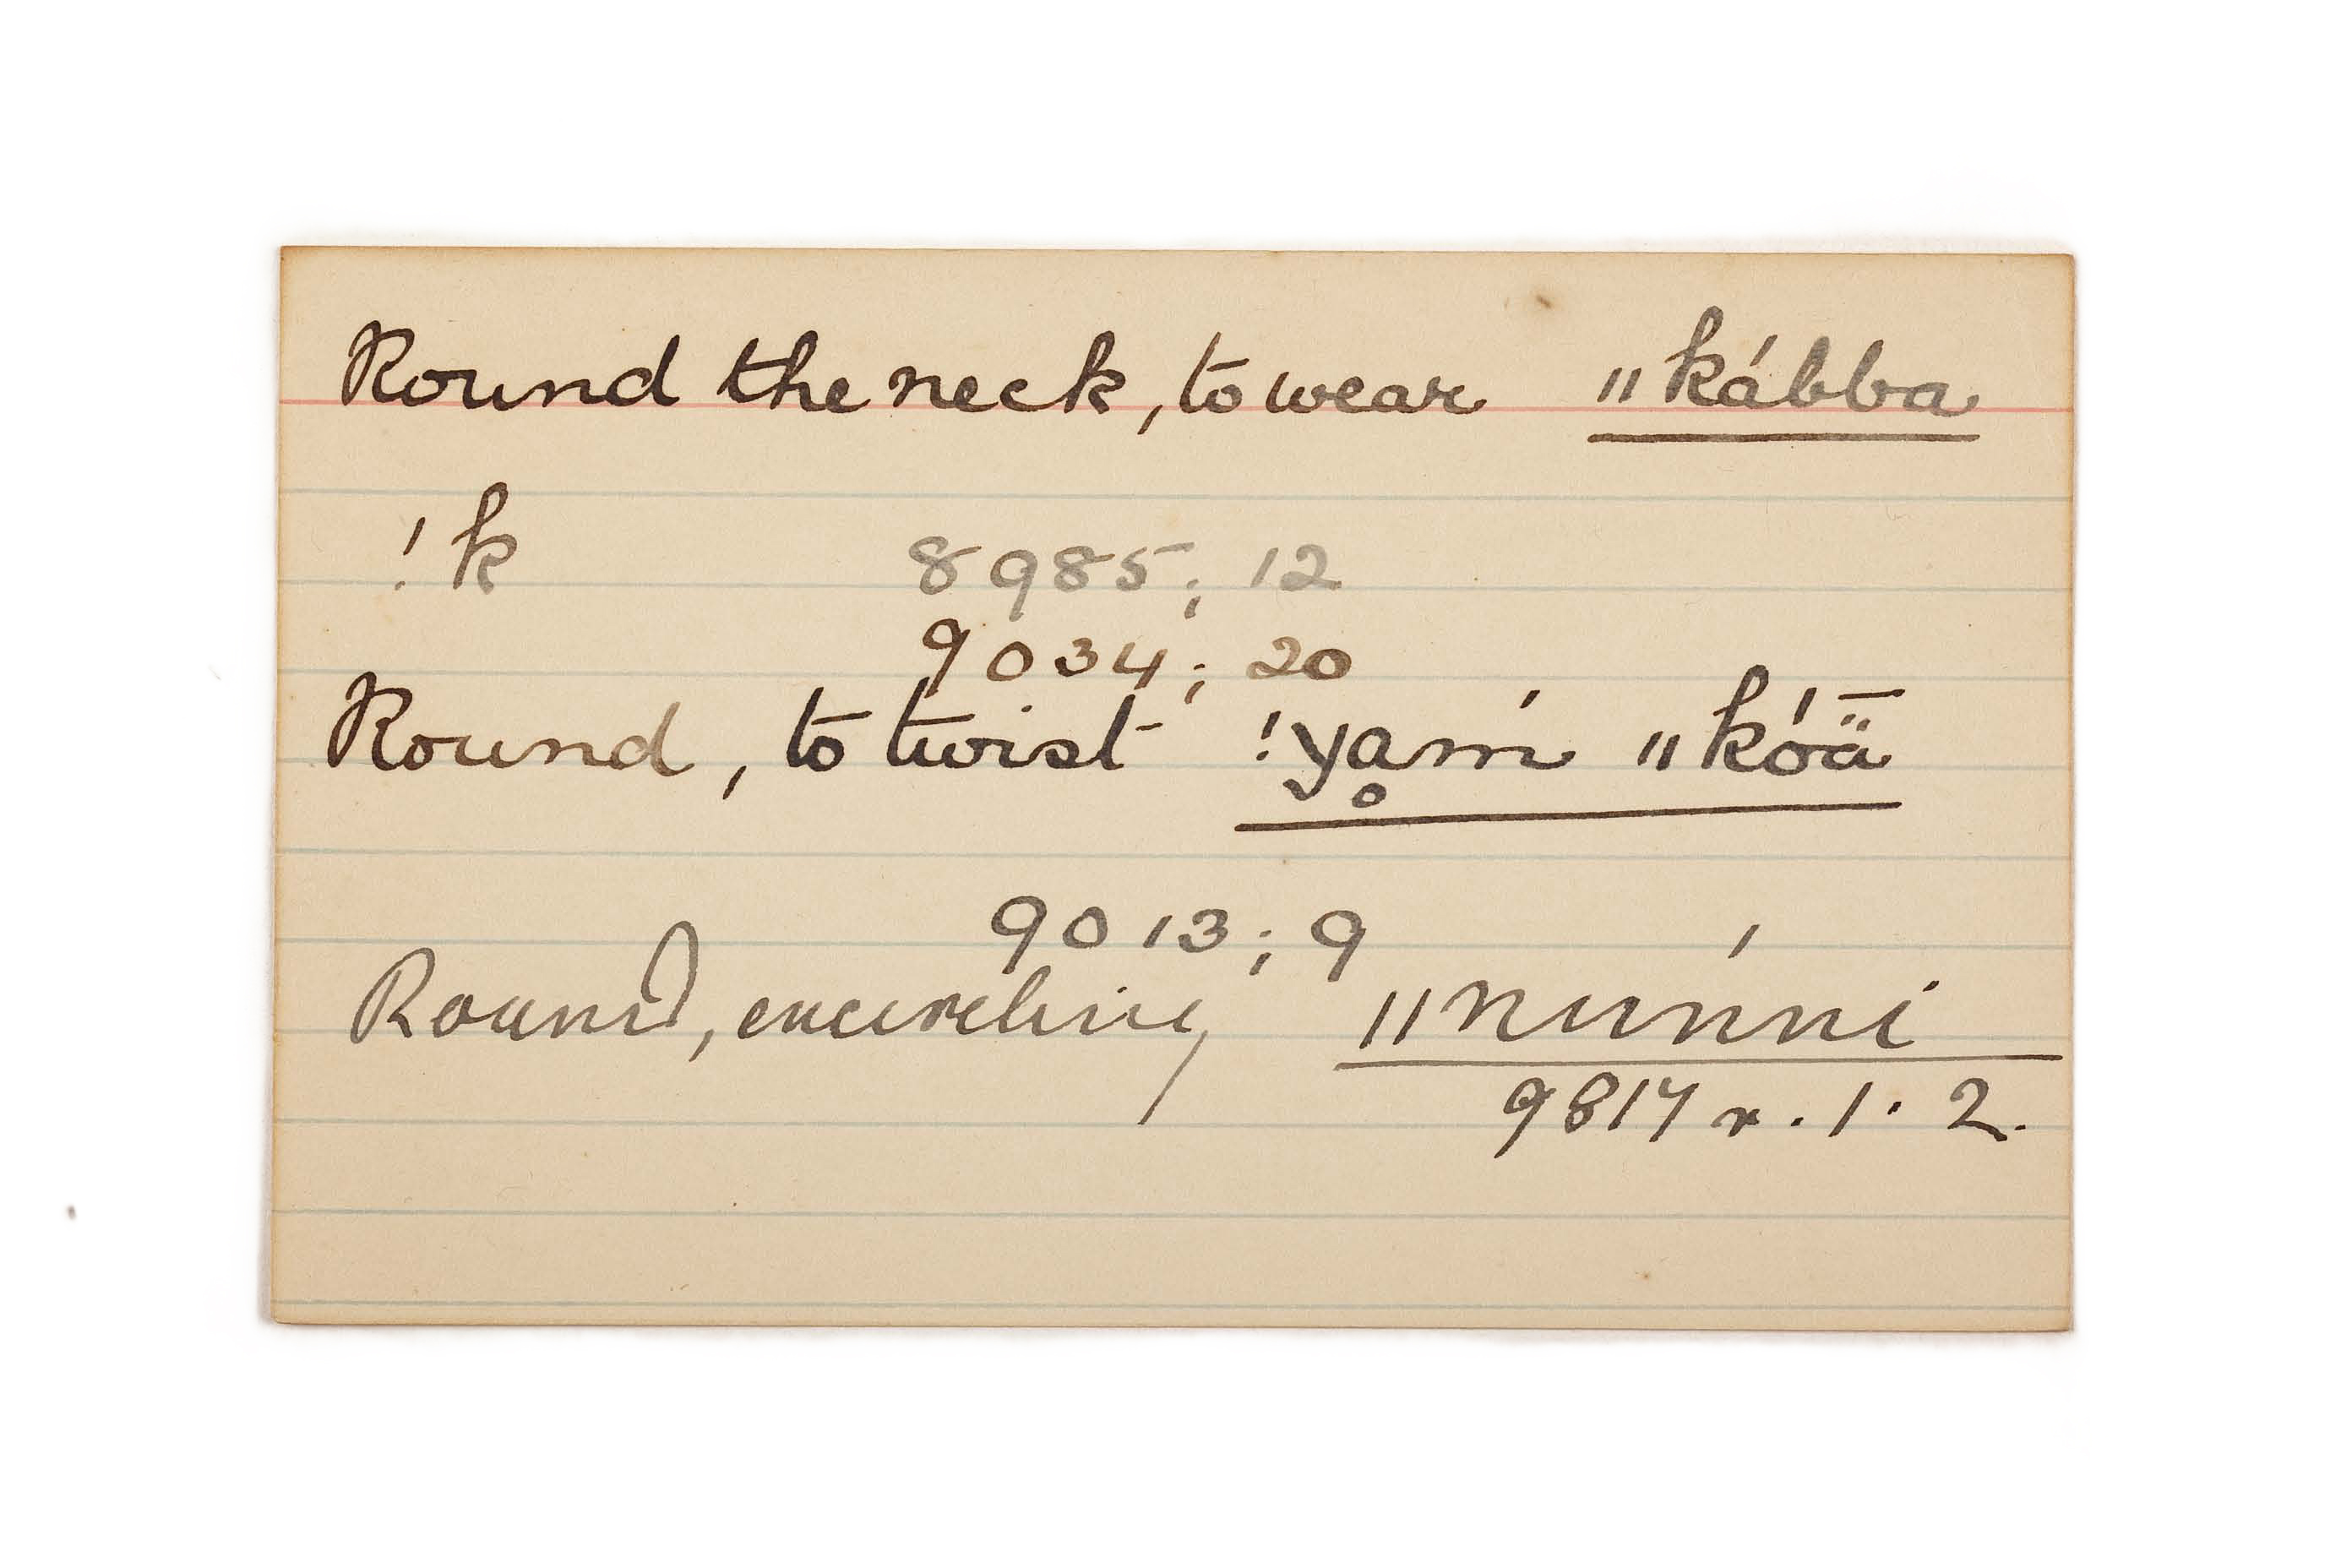 Round the neck, to wear ǁkábba
!k 8985; 12
9034; 20
Round, to twist !yḁḿ ǁkóǟ
9013; 9
Round, encircling ǁnuńni
9817 r. 1. 2.